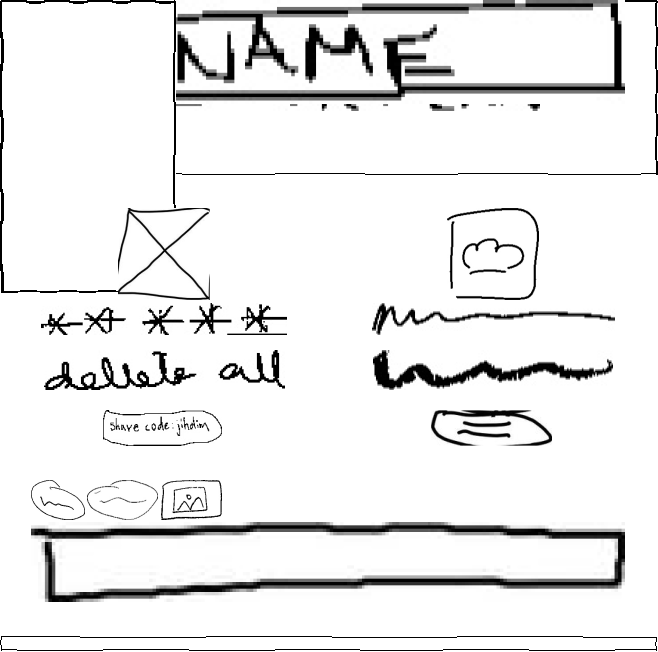 NAME
delete all
share code: jihdim